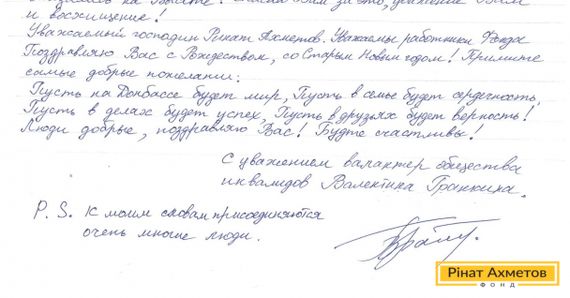 и восхищение!
Уважаемый господин Ринат Ахметов. Уважаемы работники Фонда
Поздравляю Вас с Рождеством, со Старым Новым годом! Примите
самые добрые пожелания:
Пусть на Донбассе будет мир, Пусть в семье будет сердечность,
Пусть в делах будет успех, Пусть в друзьях будет верность!
Люди добрые, поздравляю Вас! Будте счастливы!
С уважением валантер общества
инвалидов Валентина
P.S. К моим словам присоединяются
очень многие люди.
Рінат Ахметов
ФОНД